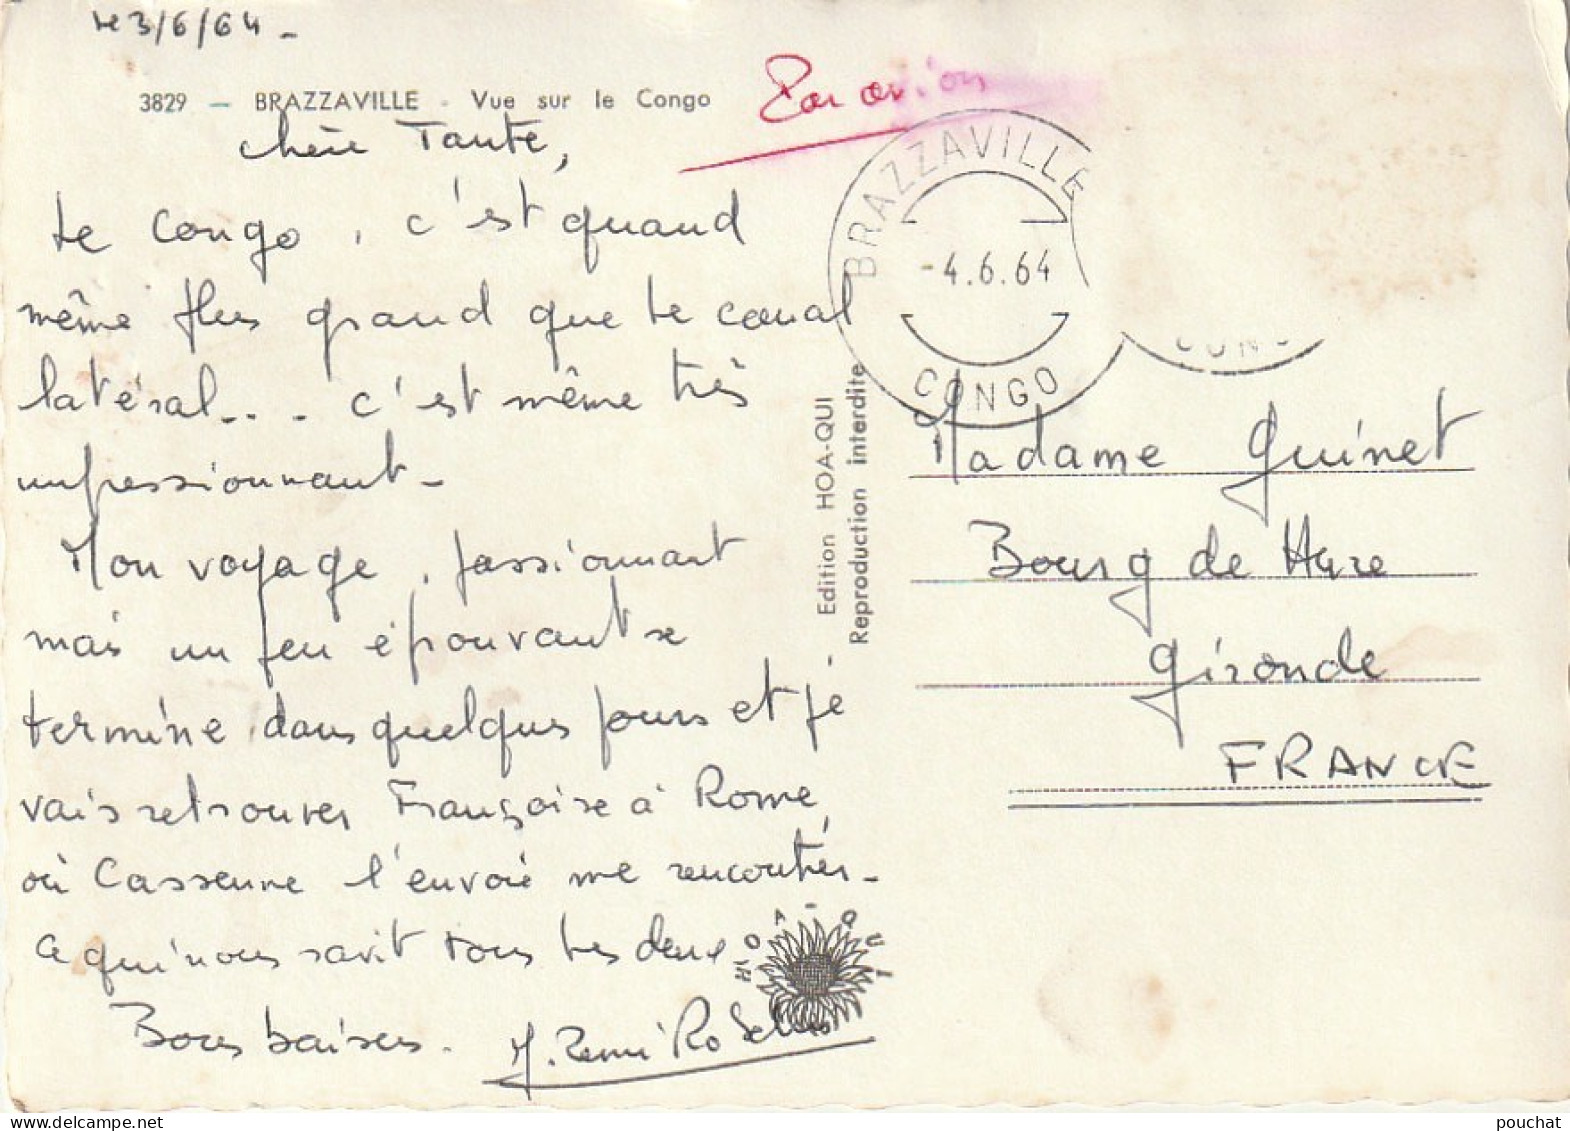 le 3/6/64 -
3829 - BRAZZAVILLE - Vue sur le Congo
Par avion
chère Tante,
Le Congo, c'est quand
même plus grand que le canal
latéral... c'est même très
impressionnant -
Mon voyage, passionnant
mais un peu épouvant se
termine dans quelques jours et je
vais retrouver Françoise à Rome,
où l'envoie me rencontrer -
ce qui nous ravit tous les deux
Bons baisers.
BRAZZAVILLE
-4.6.64
CONGO
CONGO
Edition HOA-QUI
Reproduction interdite
Madame Guinet
Bourg de Hure
Gironde
FRANCE
HOA-QUI
pouchat